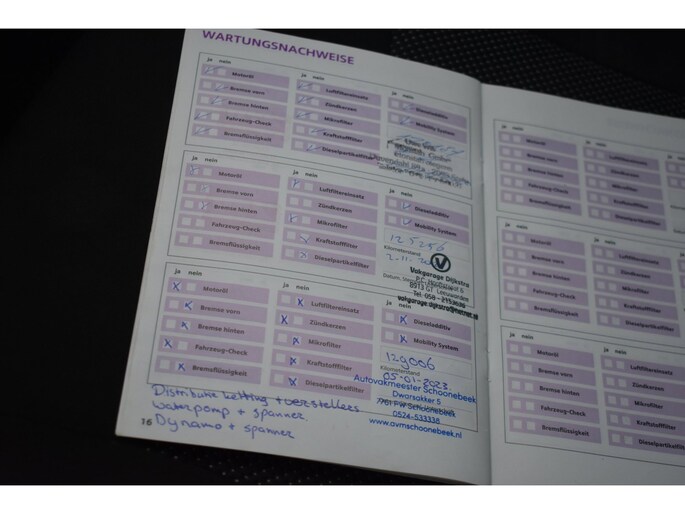 WARTUNGSNACHWEISE
ja nein
Motoröl
Bremse vorn
Bremse hinten
Fahrzeug-Check
Bremsflüssigkeit
ja nein
Luftfiltereinsatz
Zündkerzen
Mikrofilter
Kraftstofffilter
Dieselpartikelfilter
ja nein
Dieseladditiv
Mobility System
ja nein
Motoröl
Bremse vorn
Bremse hinten
Fahrzeug-Check
Bremsflüssigkeit
ja nein
Luftfiltereinsatz
Zündkerzen
Mikrofilter
Kraftstofffilter
Dieselpartikelfilter
ja nein
Dieseladditiv
Mobility System
125256
Kilometerstand
Vakgarage Dijkstra
8913 GT Leeuwarden
ja nein
Motoröl
Bremse vorn
Bremse hinten
Fahrzeug-Check
Bremsflüssigkeit
ja nein
Luftfiltereinsatz
Zündkerzen
Mikrofilter
Kraftstofffilter
Dieselpartikelfilter
ja nein
Dieseladditiv
Mobility System
129006
Kilometerstand
05-01-2023
Autovakmeester Schoonebeek
Dworsakker 5
7761 PW Schoonebeek
0524-533338
www.avmschoonebeek.nl
Distributie ketting + verstellers
waterpomp + spanner
Dynamo + spanner
16
ja nein
Motoröl
Bremse vorn
Bremse hinten
Fahrzeug-Check
Bremsflüssigkeit
ja nein
Luftfiltereinsatz
Zündkerzen
Mikrofilter
Kraftstofffilter
Dieselpartikelfilter
ja nein
Motoröl
Bremse vorn
Bremse hinten
Fahrzeug-Check
Bremsflüssigkeit
ja nein
Luftfiltereinsatz
Zündkerzen
Mikrofilter
Kraftstofffilter
Dieselpartikelfilter
ja nein
Motoröl
Bremse vorn
Bremse hinten
Fahrzeug-Check
Bremsflüssigkeit
ja nein
Luftfiltereinsatz
Zündkerzen
Mikrofilter
Kraftstofffilter
Dieselpartikelfilter